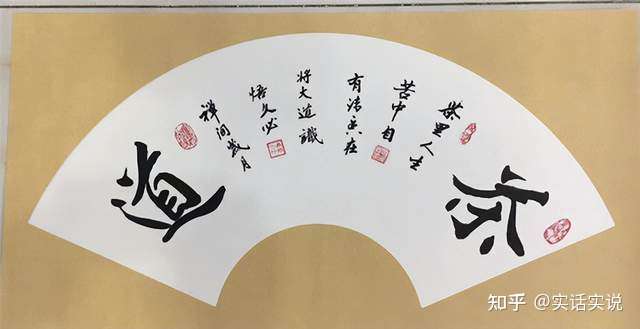 茶
茶里人生
苦中自
有清香在
将大道識
悟久必
禅间歲月
道
知乎 @实话实说